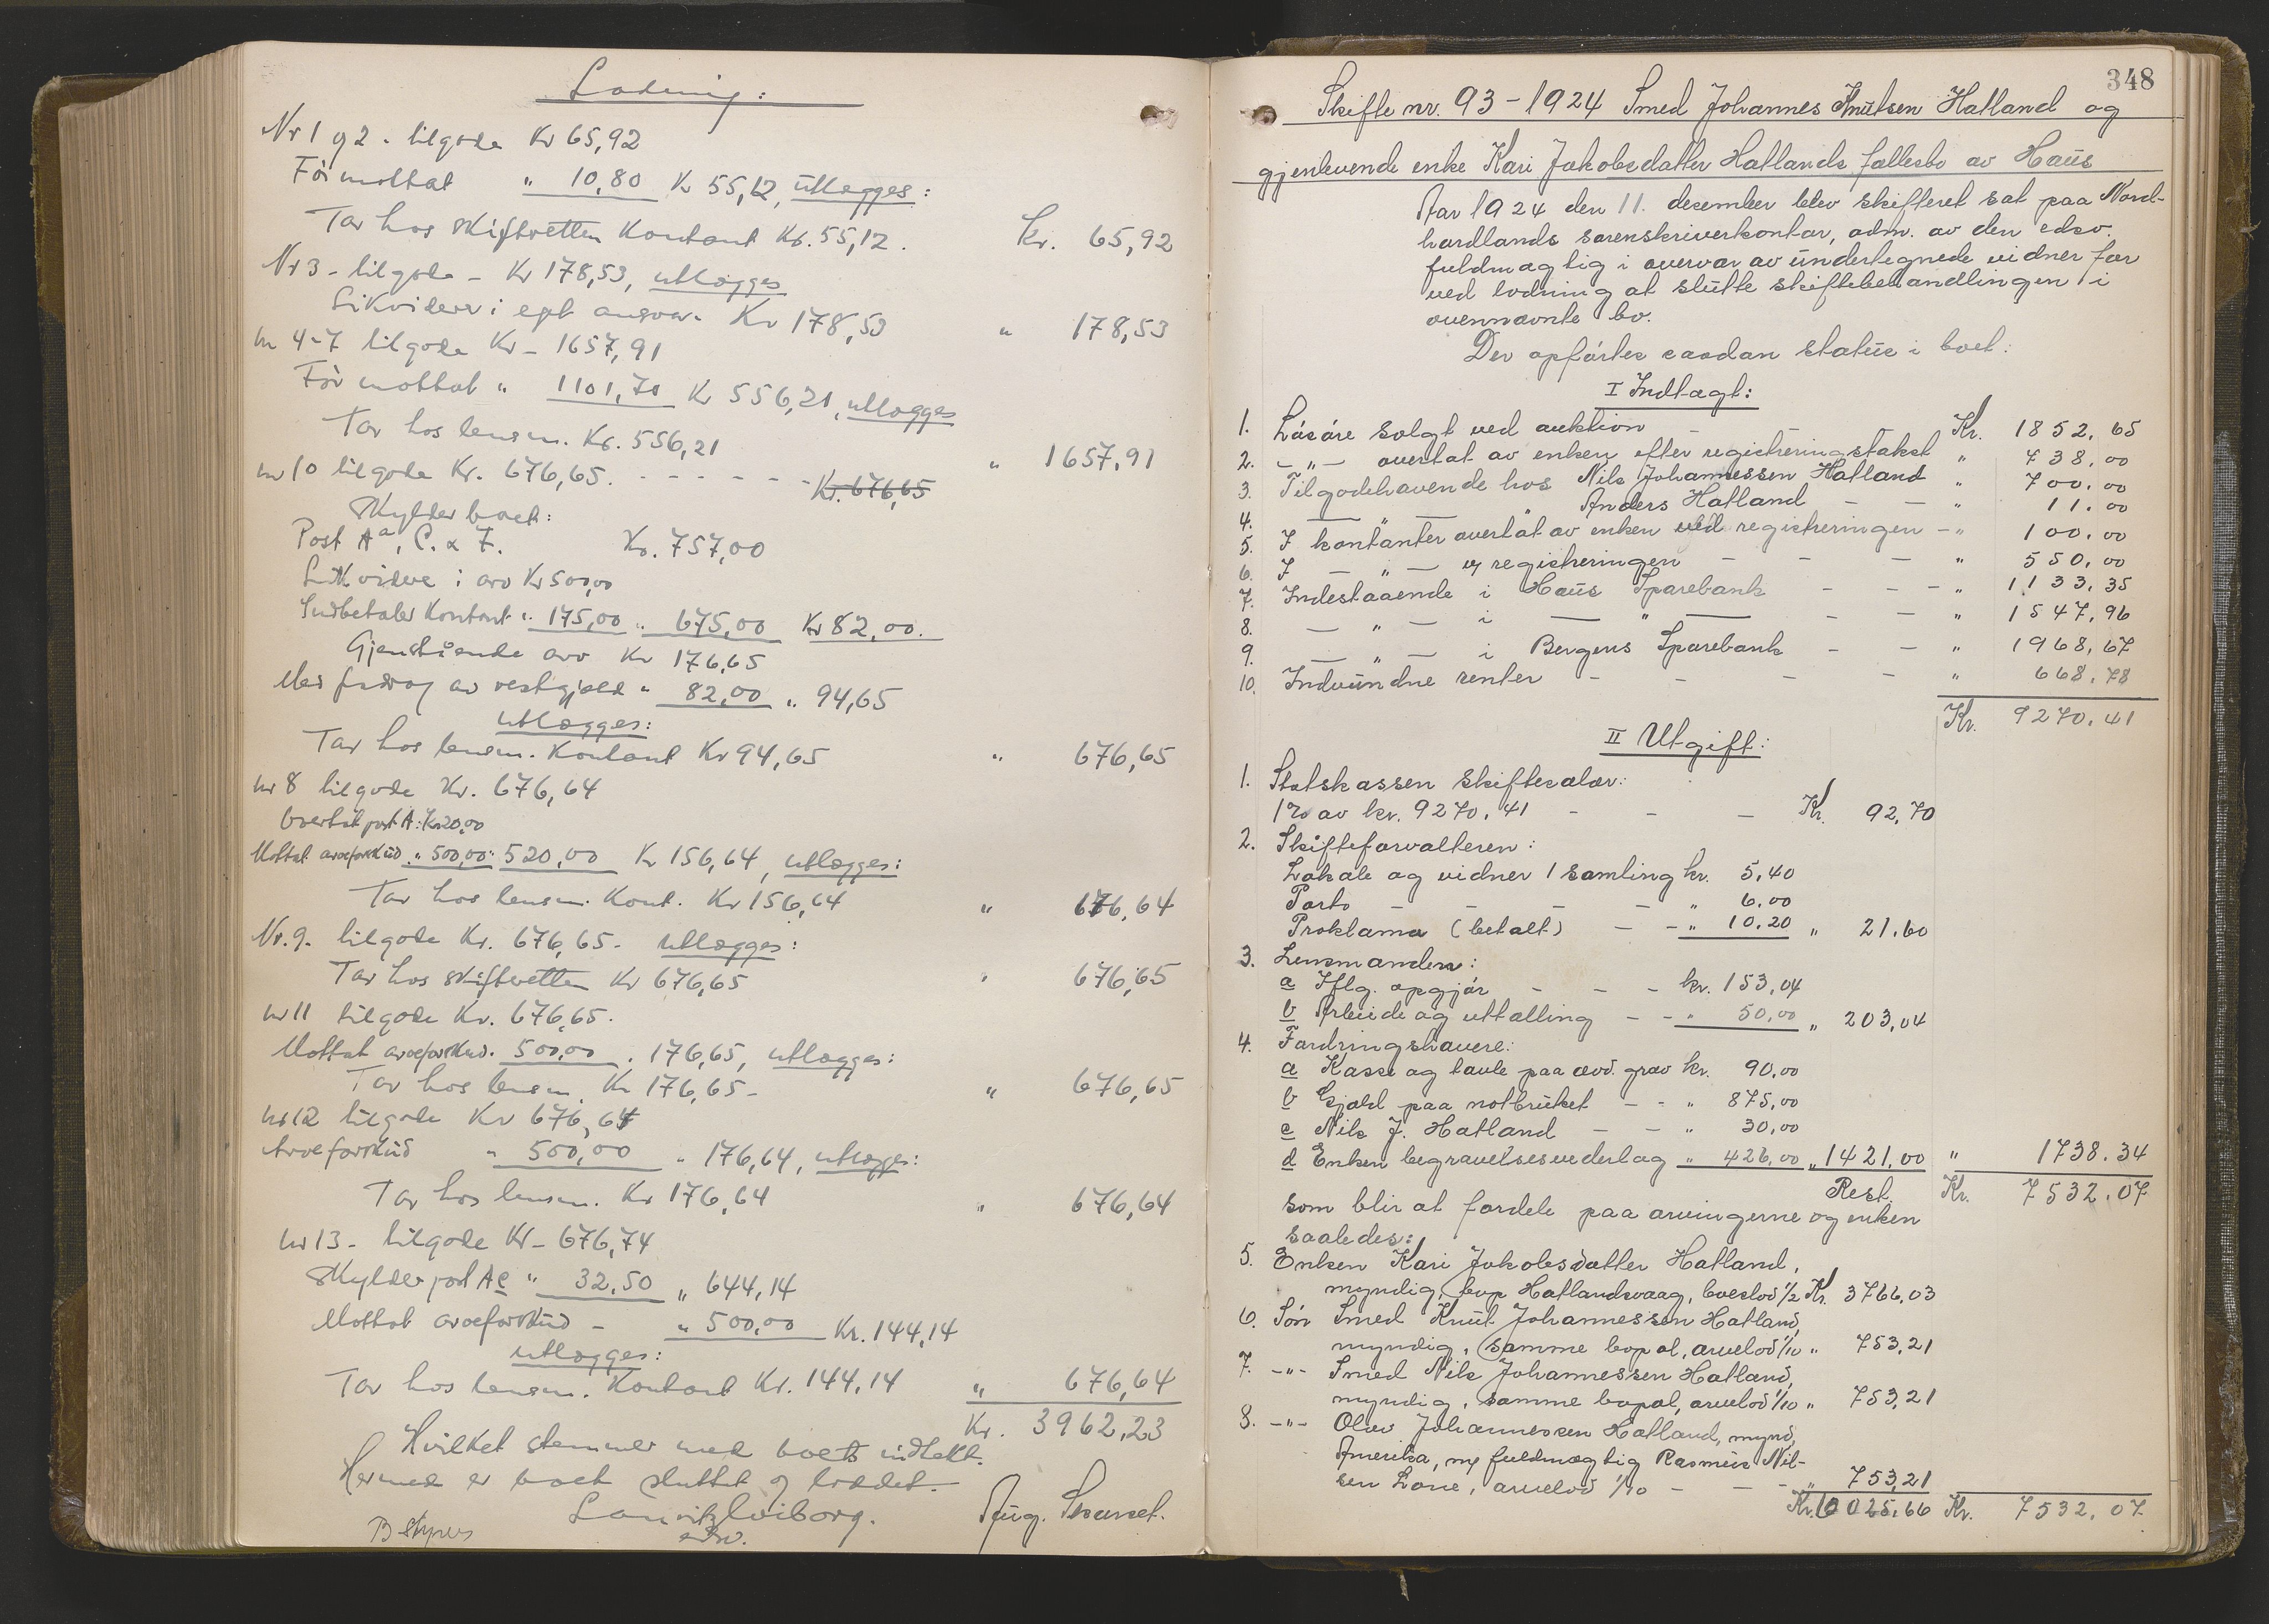 Lodning:
Nr 1 og 2 - tilgode Kr 65,92
Før mottat " 10,80 Kr 55,12, utlægges:
Tar hos skifteretten Kontant Kr. 55,12. Kr. 65,92
Nr 3 - tilgode - Kr 178,53, utlægges
Likviderer i eget ansvar Kr 178,53 " 178,53
nr 4-7 tilgode Kr - 1657,91
Før mottat " 1101,70 Kr 556,21, utlægges
Tar hos lensm. Kr. 556,21 " 1657,91
nr 10 tilgode Kr. 676,65. - - - - - - Kr. 676,65
Skylder boet:
Post Aa, C. & F. Kr. 757,00
Likvidere i arv Kr 500,00
Indbetaler Kontant ". 175,00 " 675,00 Kr 82,00.
Gjenstående arv Kr 176,65
Med fradrag av restgjæld " 82,00 " 94,65
utlægges:
Tar hos lensm. Kontant Kr 94,65 " 676,65
nr 8 tilgode Kr. 676,64
Overtat post A: Kr 20,00
Mottat arveforskud " 500,00 " 520,00 Kr 156,64, utlægges:
Tar hos lensm. Kont. Kr 156,64 " 676,64
Nr. 9. tilgode Kr. 676,65 - utlægges:
Tar hos skifteretten Kr 676,65 " 676,65
nr 11 tilgode Kr. 676,65.
Mottat arveforskud. 500,00 . 176,65, utlægges:
Tar hos lensm. Kr 176,65 - " 676,65
nr 12 tilgode Kr 676,64
Arveforskud " 500,00 " 176,64, utlægges:
Tar hos lensm. Kr 176,64 " 676,64
nr 13 - tilgode Kr - 676,74
Skylder post Ac " 32,50 " 644,14
Mottat arveforskud - " 500,00 Kr. 144,14
utlægges:
Tar hos lensm. Kontant Kr. 144,14 " 676,64
Kr. 3962,23
Hvilket stemmer med boets indtekt.
Hermed er boet sluttet og loddet.
Lauritz Wiborg.
edsv.
348
Skifte nr. 93 - 1924 Smed Johannes Knutsen Hatland og
gjenlevende enke Kari Jakobsdatter Hatlands fællesbo av Haus
Aar 1924 den 11. desember blev skifteret sat paa Nord-
hordlands sorenskriverkontor, adm. av den edsv.
fuldmægtig i overvær av undertegnede vidner for
ved lodning at slutte skiftebehandlingen i
ovennævnte bo.
Der opførtes saadan status i boet:
I Indtægt:
1. Løsøre solgt ved auktion - Kr. 1852,65
2. - " - overtat av enken efter registreringstakst " 738,00
3. Tilgodehavende hos Nils Johannessen Hatland " 700,00
4. — " — Anders Hatland - - " 11,00
5. I kontanter overtat av enken ved registreringen - " 100,00
6. I — " — ej registreringen - - - " 550,00
7. Indestaaende i Haus Sparebank - - - " 1133,35
8. — " — i — " — - - " 1547,96
9. — " — i Bergens Sparebank - - " 1968,67
10. Indvundne renter - - - - " 668,78
Kr. 9270,41
II Utgift:
1. Statskassen skiftesalær:
1% av kr. 9270,41 - - - Kr. 92,70
2. Skifteforvalteren:
Lokale og vidner 1 samling kr. 5,40
Porto - - - - " 6,00
Proklama (betalt) - - " 10,20 " 21,60
3. Lensmanden:
a Iflg. opgjør - - - kr. 153,04
b Arbeide og uttælling - - " 50,00 " 203,04
4. Fordringshavere:
a Kasse og tavle paa avd. grav kr. 90,00
b Gjæld paa notbruket - - " 875,00
c Nils J. Hatland - - " 30,00
d Enken begravelsesvederlag " 426,00 " 1421,00 " 1738,34
Rest. Kr. 7532,07
som blir at fordele paa arvingerne og enken
saaledes:
5. Enken Kari Jakobsdatter Hatland,
myndig, bop Hatlandsvaag, boeslod 1/2 Kr. 3766,03
6. Søn Smed Knut Johannessen Hatland,
myndig, samme bopæl, arvelod 1/10 " 753,21
7. - " - Smed Nils Johannessen Hatland,
myndig, samme bopæl, arvelod 1/10 " 753,21
8. - " - Olav Johannessen Hatland, mynd,
Amerika, ved fuldmægtig Rasmus Nil-
sen Lone, arvelod 1/10 - - - " 753,21
Kr. 6025,66 Kr. 7532,07